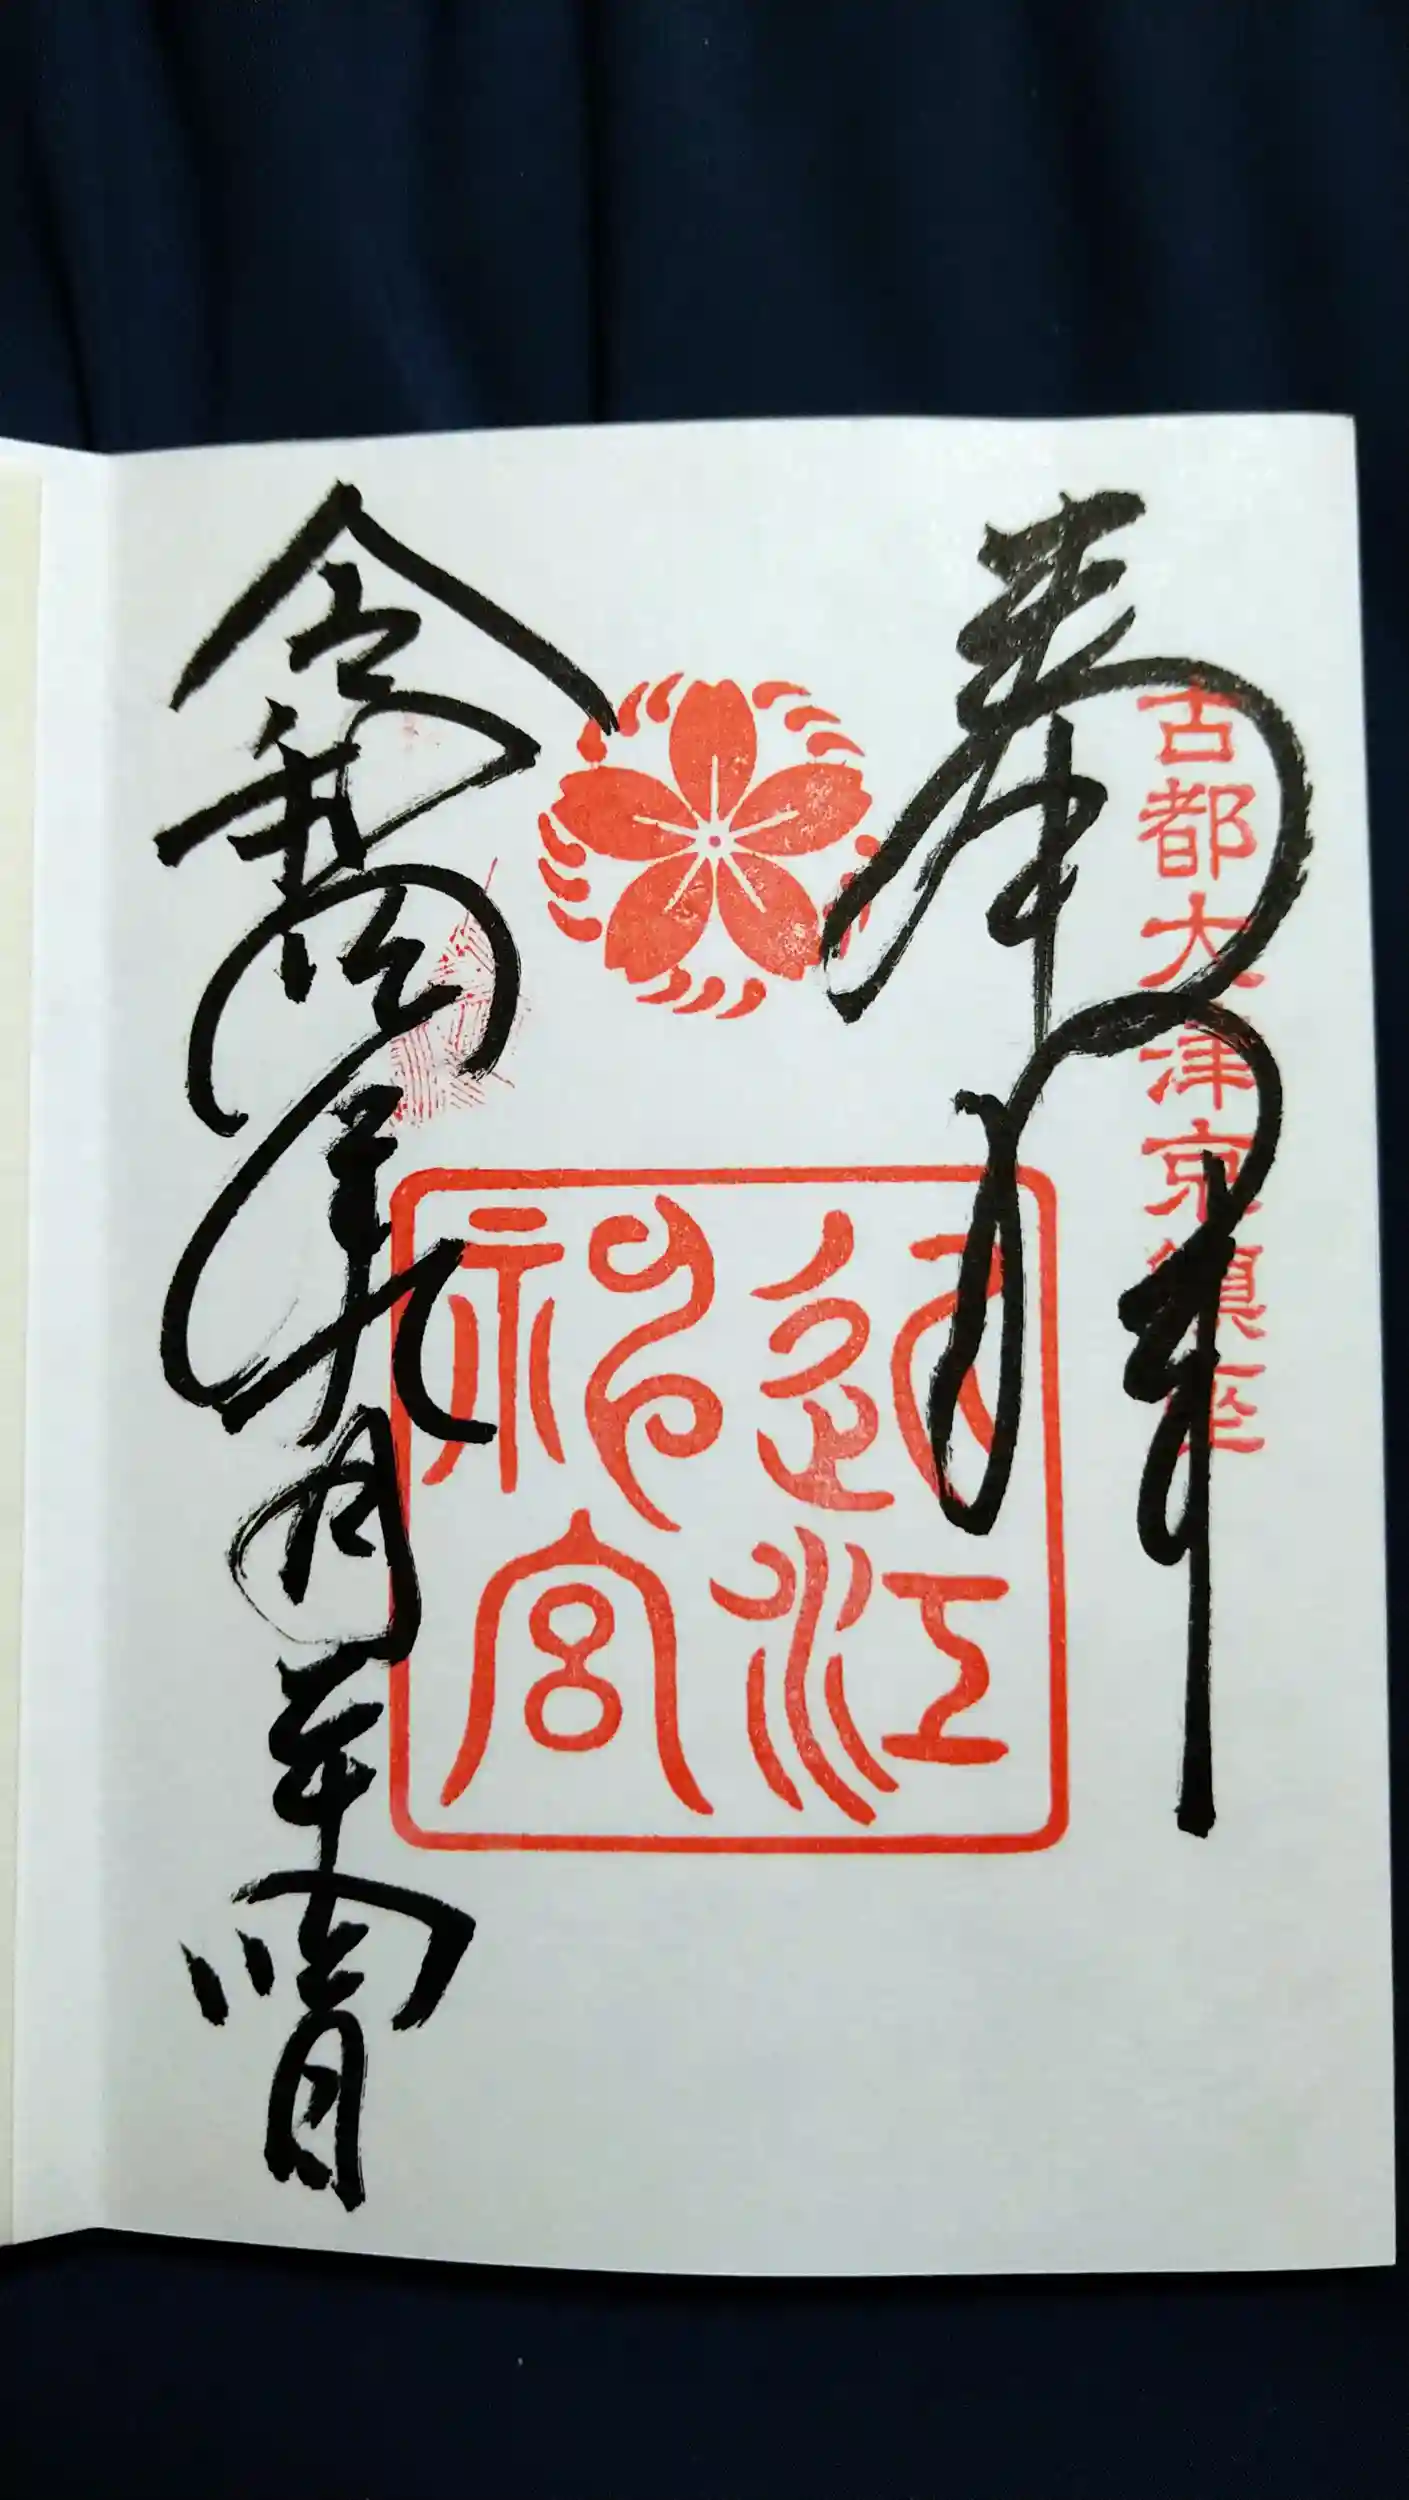 奉拝
古都大津京鎮座
近江神宮
令和元年九月二十二日